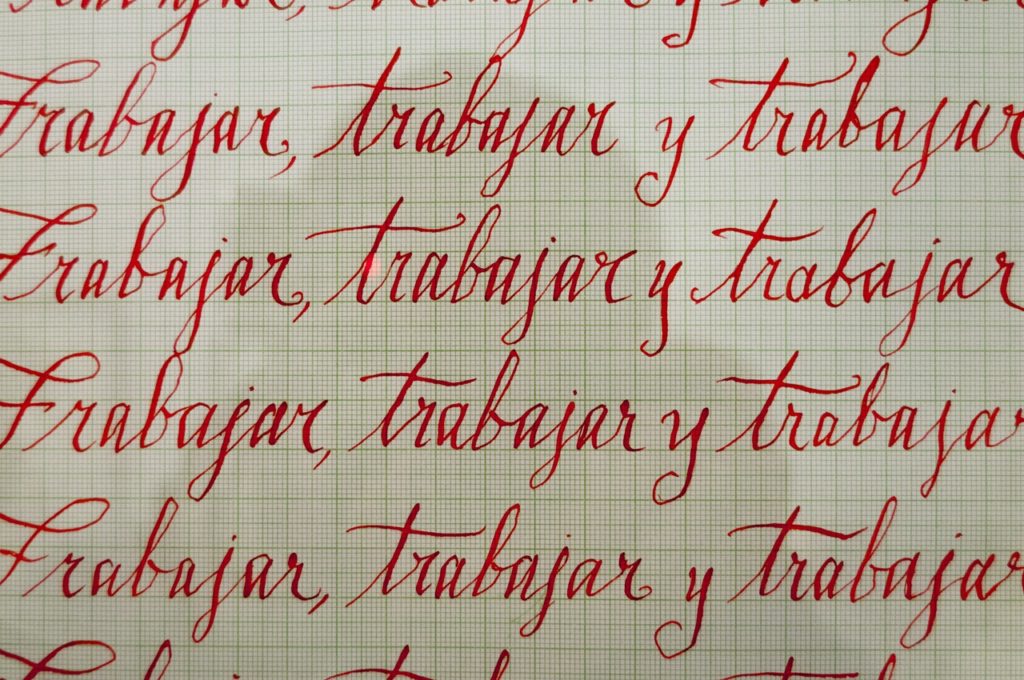 Trabajar, trabajar y trabajar
Trabajar, trabajar y trabajar
Trabajar, trabajar y trabajar
Trabajar, trabajar y trabajar